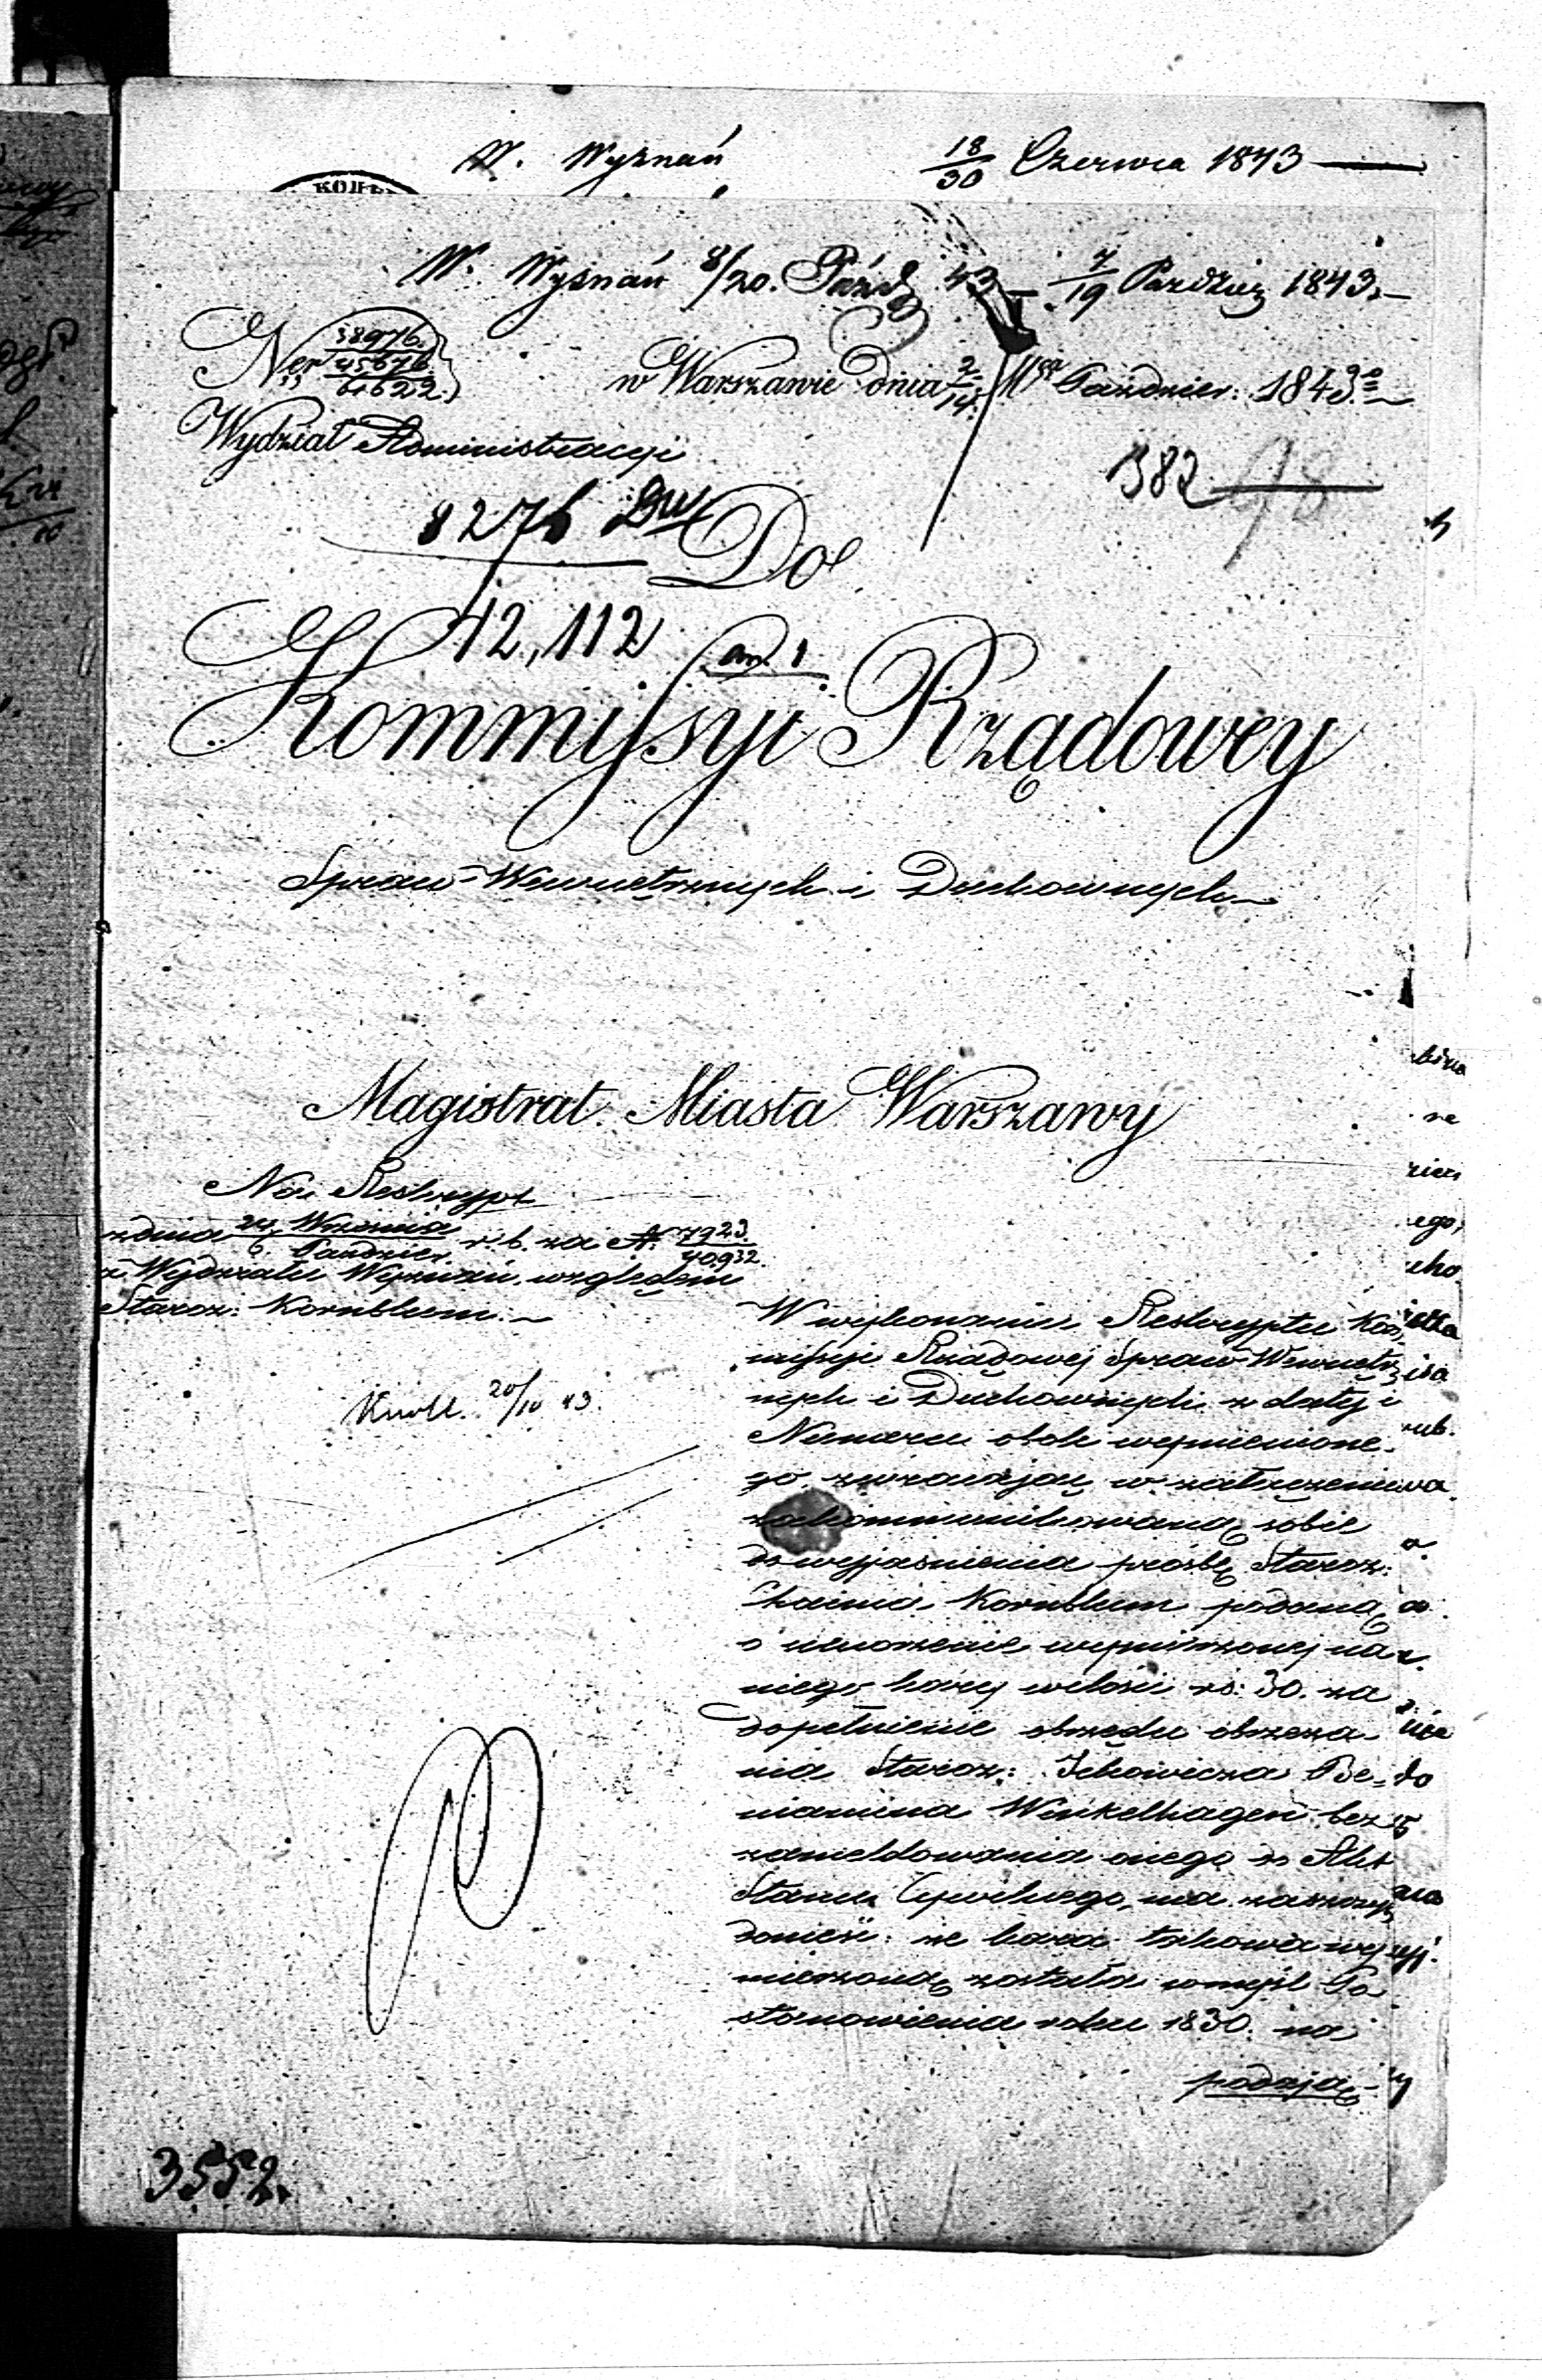 W. Wyznań 18/30 Czerwca 1843
W. Wyznań 8/20. Paźdz 43 7/19 Paździer 1843
Ner 38976. 45676. 61622.
w Warszawie dnia 2/14 Mca Październ: 1843 ro
Wydział Administracyi
1382
8276
Do
42,112
Kommissyi Rządowey
Spraw Wewnętrznych i Duchownych
Magistrat Miasta Warszawy
Na Reskrypt
z dnia 24 Września / 6 Paździer r. b. za N. 7923 / 40932
z Wydziału Wyznań względem
Staroz: Kornblum.
20/10 43.
W wykonaniu Reskryptu Kom
missyi Rządowej Spraw Wewnętrz
nych i Duchownych z daty i
Numeru obok wymienione
go, zwracając w załączeniu
zakommunikowaną sobie
do wyjaśnienia prośbę Staroz:
Chaima Kornblum podaną
o umorzenie wymierzonej na
niego kary w ilości rs: 30. za
dopełnienie obrzędu obrzeza-
nia Staroz: Ickowicza Be=
niamina Winkelhagen bez
zameldowania onego do Akt
Stanu Cywilnego, ma zaszczyt
donieść: że kara takowa wy
mierzoną została w myśl Po
stanowienia roku 1830. na
podsta
3552.